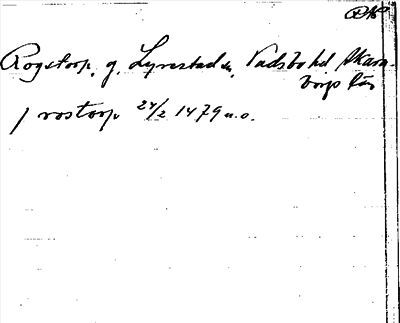 Rogstorp, g. Lyrestad sn, Vadsbo hd Skara-
borgs län
j rostorp 24/2 1479 u.o.